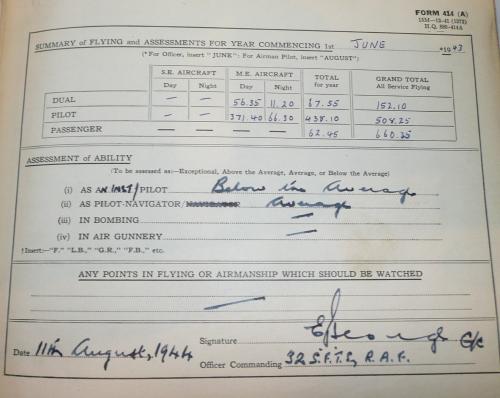 FORM 414 (A)
SUMMARY of FLYING and ASSESSMENTS FOR YEAR COMMENCING 1st JUNE *1943
(*For Officer, insert "JUNE"; For Airman Pilot, insert "AUGUST");
S.E. AIRCRAFT M.E. AIRCRAFT TOTAL GRAND TOTAL
Day Night Day Night for year All Service Flying
DUAL — — 56.35 11.20 67.55 152.10
PILOT — — 371.40 66.30 438.10 508.25
PASSENGER — — — — 62.45 660.35
ASSESSMENT of ABILITY
(To be assessed as:—Exceptional, Above the Average, Average, or Below the Average)
(i) AS AN INST/PILOT Below the Average
(ii) AS PILOT-NAVIGATOR/NAVIGATOR Average
(iii) IN BOMBING —
(iv) IN AIR GUNNERY —
†Insert:—"F." "L.B.," "G.R.," "F.B.," etc.
ANY POINTS IN FLYING OR AIRMANSHIP WHICH SHOULD BE WATCHED
—
Signature G/C
Date 11th August, 1944
Officer Commanding 32 S.F.T.S., R.A.F.